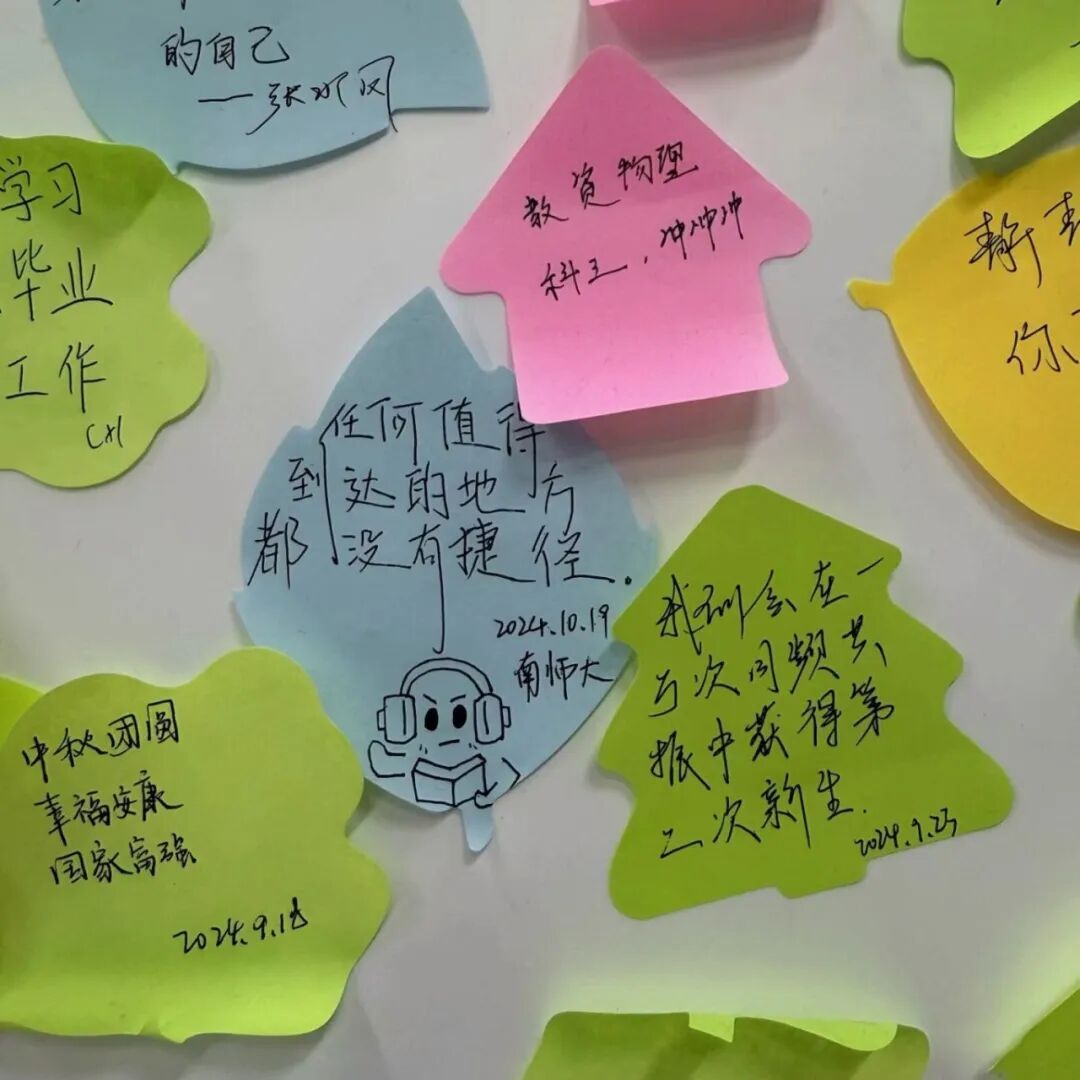 的自己
学习
毕业
工作
教资物理
科三，冲冲冲
静
你
任何值得
到达的地方
都没有捷径.
2024.10.19
南师大
我们会在一
与次同频共
振中获得第
二次新生.
2024.9.23
中秋团圆
幸福安康
国家富强